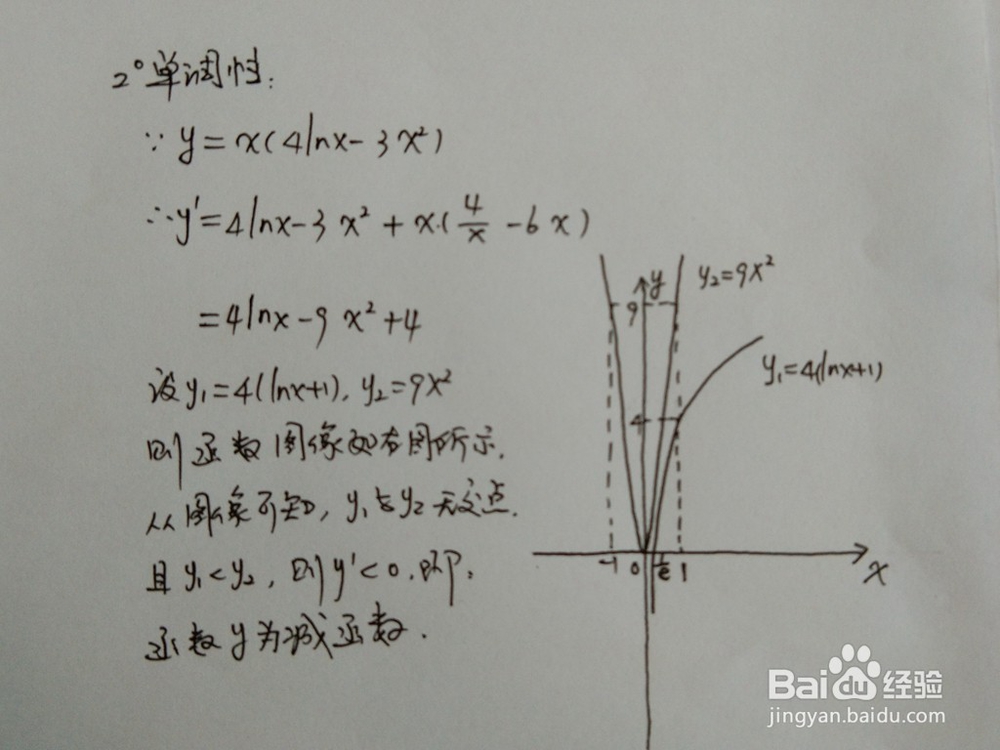 2°单调性:
∵ y = x(4lnx - 3x²)
∴ y' = 4lnx - 3x² + x·(4/x - 6x)
= 4lnx - 9x² + 4
设y₁ = 4(lnx+1), y₂ = 9x²
则函数图像如右图所示.
从图像可知, y₁与y₂无交点.
且y₁<y₂, 则y'<0, 即:
函数y为减函数.
y
y₂=9x²
9
y₁=4(lnx+1)
4
-1 0 1/e 1 x
Baidu 经验
jingyan.baidu.com